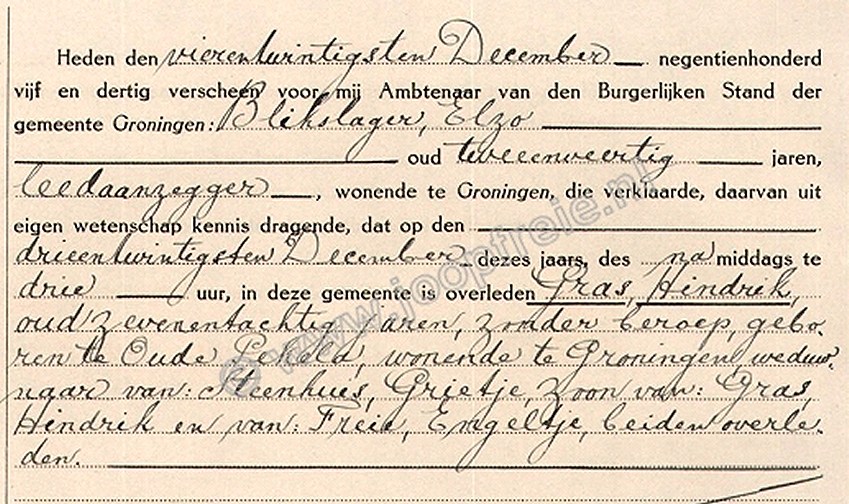 Heden den vierentwintigsten December negentienhonderd
vijf en dertig verscheen voor mij Ambtenaar van den Burgerlijken Stand der
gemeente Groningen: Blikslager, Elzo
oud tweeenveertig jaren,
leedaanzegger, wonende te Groningen, die verklaarde, daarvan uit
eigen wetenschap kennis dragende, dat op den
drieentwintigsten December dezes jaars, des namiddags te
drie uur, in deze gemeente is overleden Gras, Hindrik,
oud zevenentachtig jaren, zonder beroep, gebo-
ren te Oude Pekela, wonende te Groningen, weduw-
naar van: Steenhuis, Grietje, zoon van: Gras,
Hindrik en van: Freie, Engeltje, beiden overle-
den.
© www.joopfreie.nl